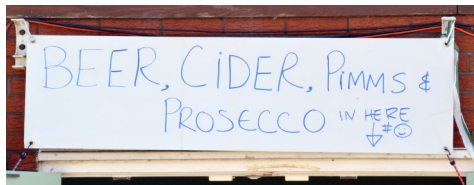 BEER, CiDER, PiMMS &
PROSECCO IN HERE
#☺